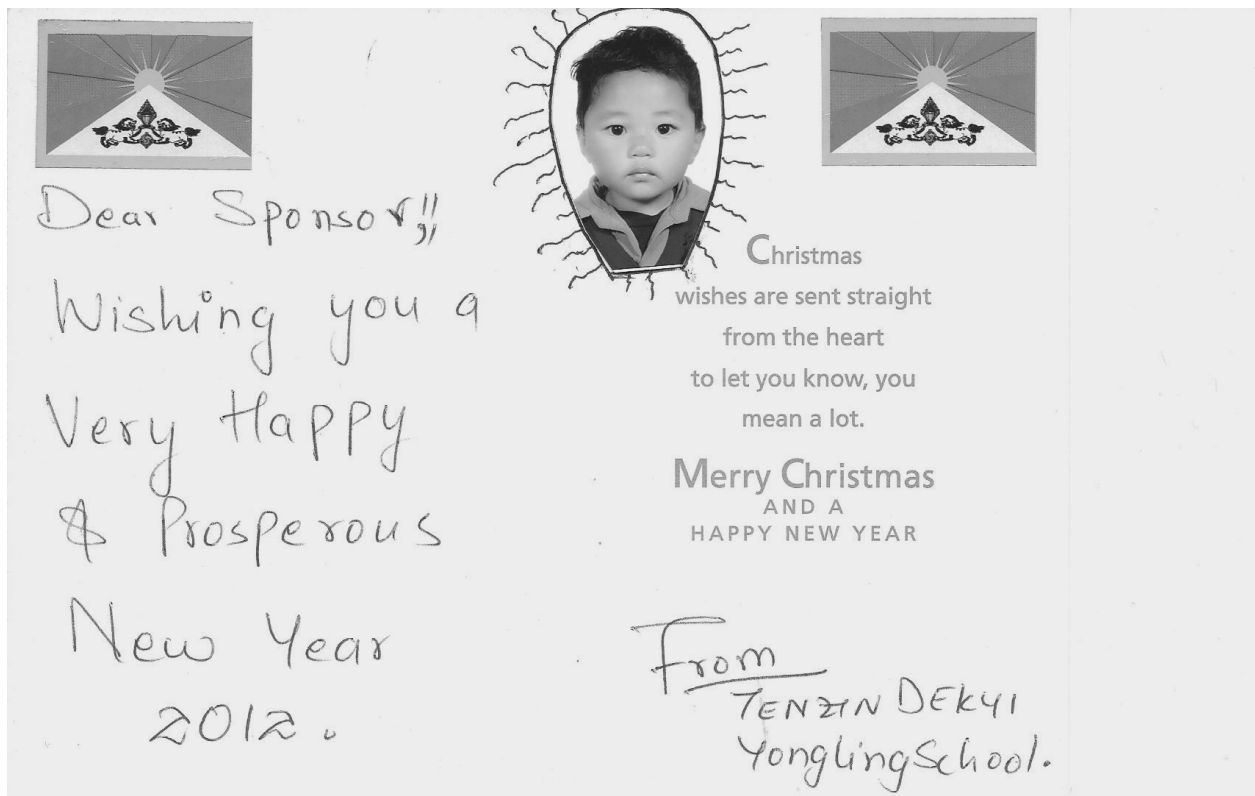 Dear Sponsor!!
Wishing you a
Very Happy
& Prosperous
New Year
2012.
Christmas
wishes are sent straight
from the heart
to let you know, you
mean a lot.
Merry Christmas
AND A
HAPPY NEW YEAR
From
TENZIN DEKYI
Yongling School.